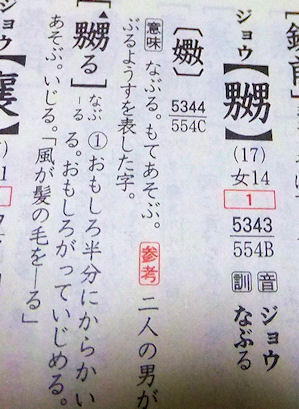 ジョウ【嬲】
(17)
女14
1
5343
554B
音 ジョウ
訓 なぶる
〔嫐〕
5344
554C
意味 なぶる。もてあそぶ。 参考 二人の男が
ぶるようすを表した字。
〔▲嬲る〕
なぶ
-る
①おもしろ半分にからかい
る。おもしろがっていじめる。
あそぶ。いじる。「風が髪の毛を―る」
ジョウ